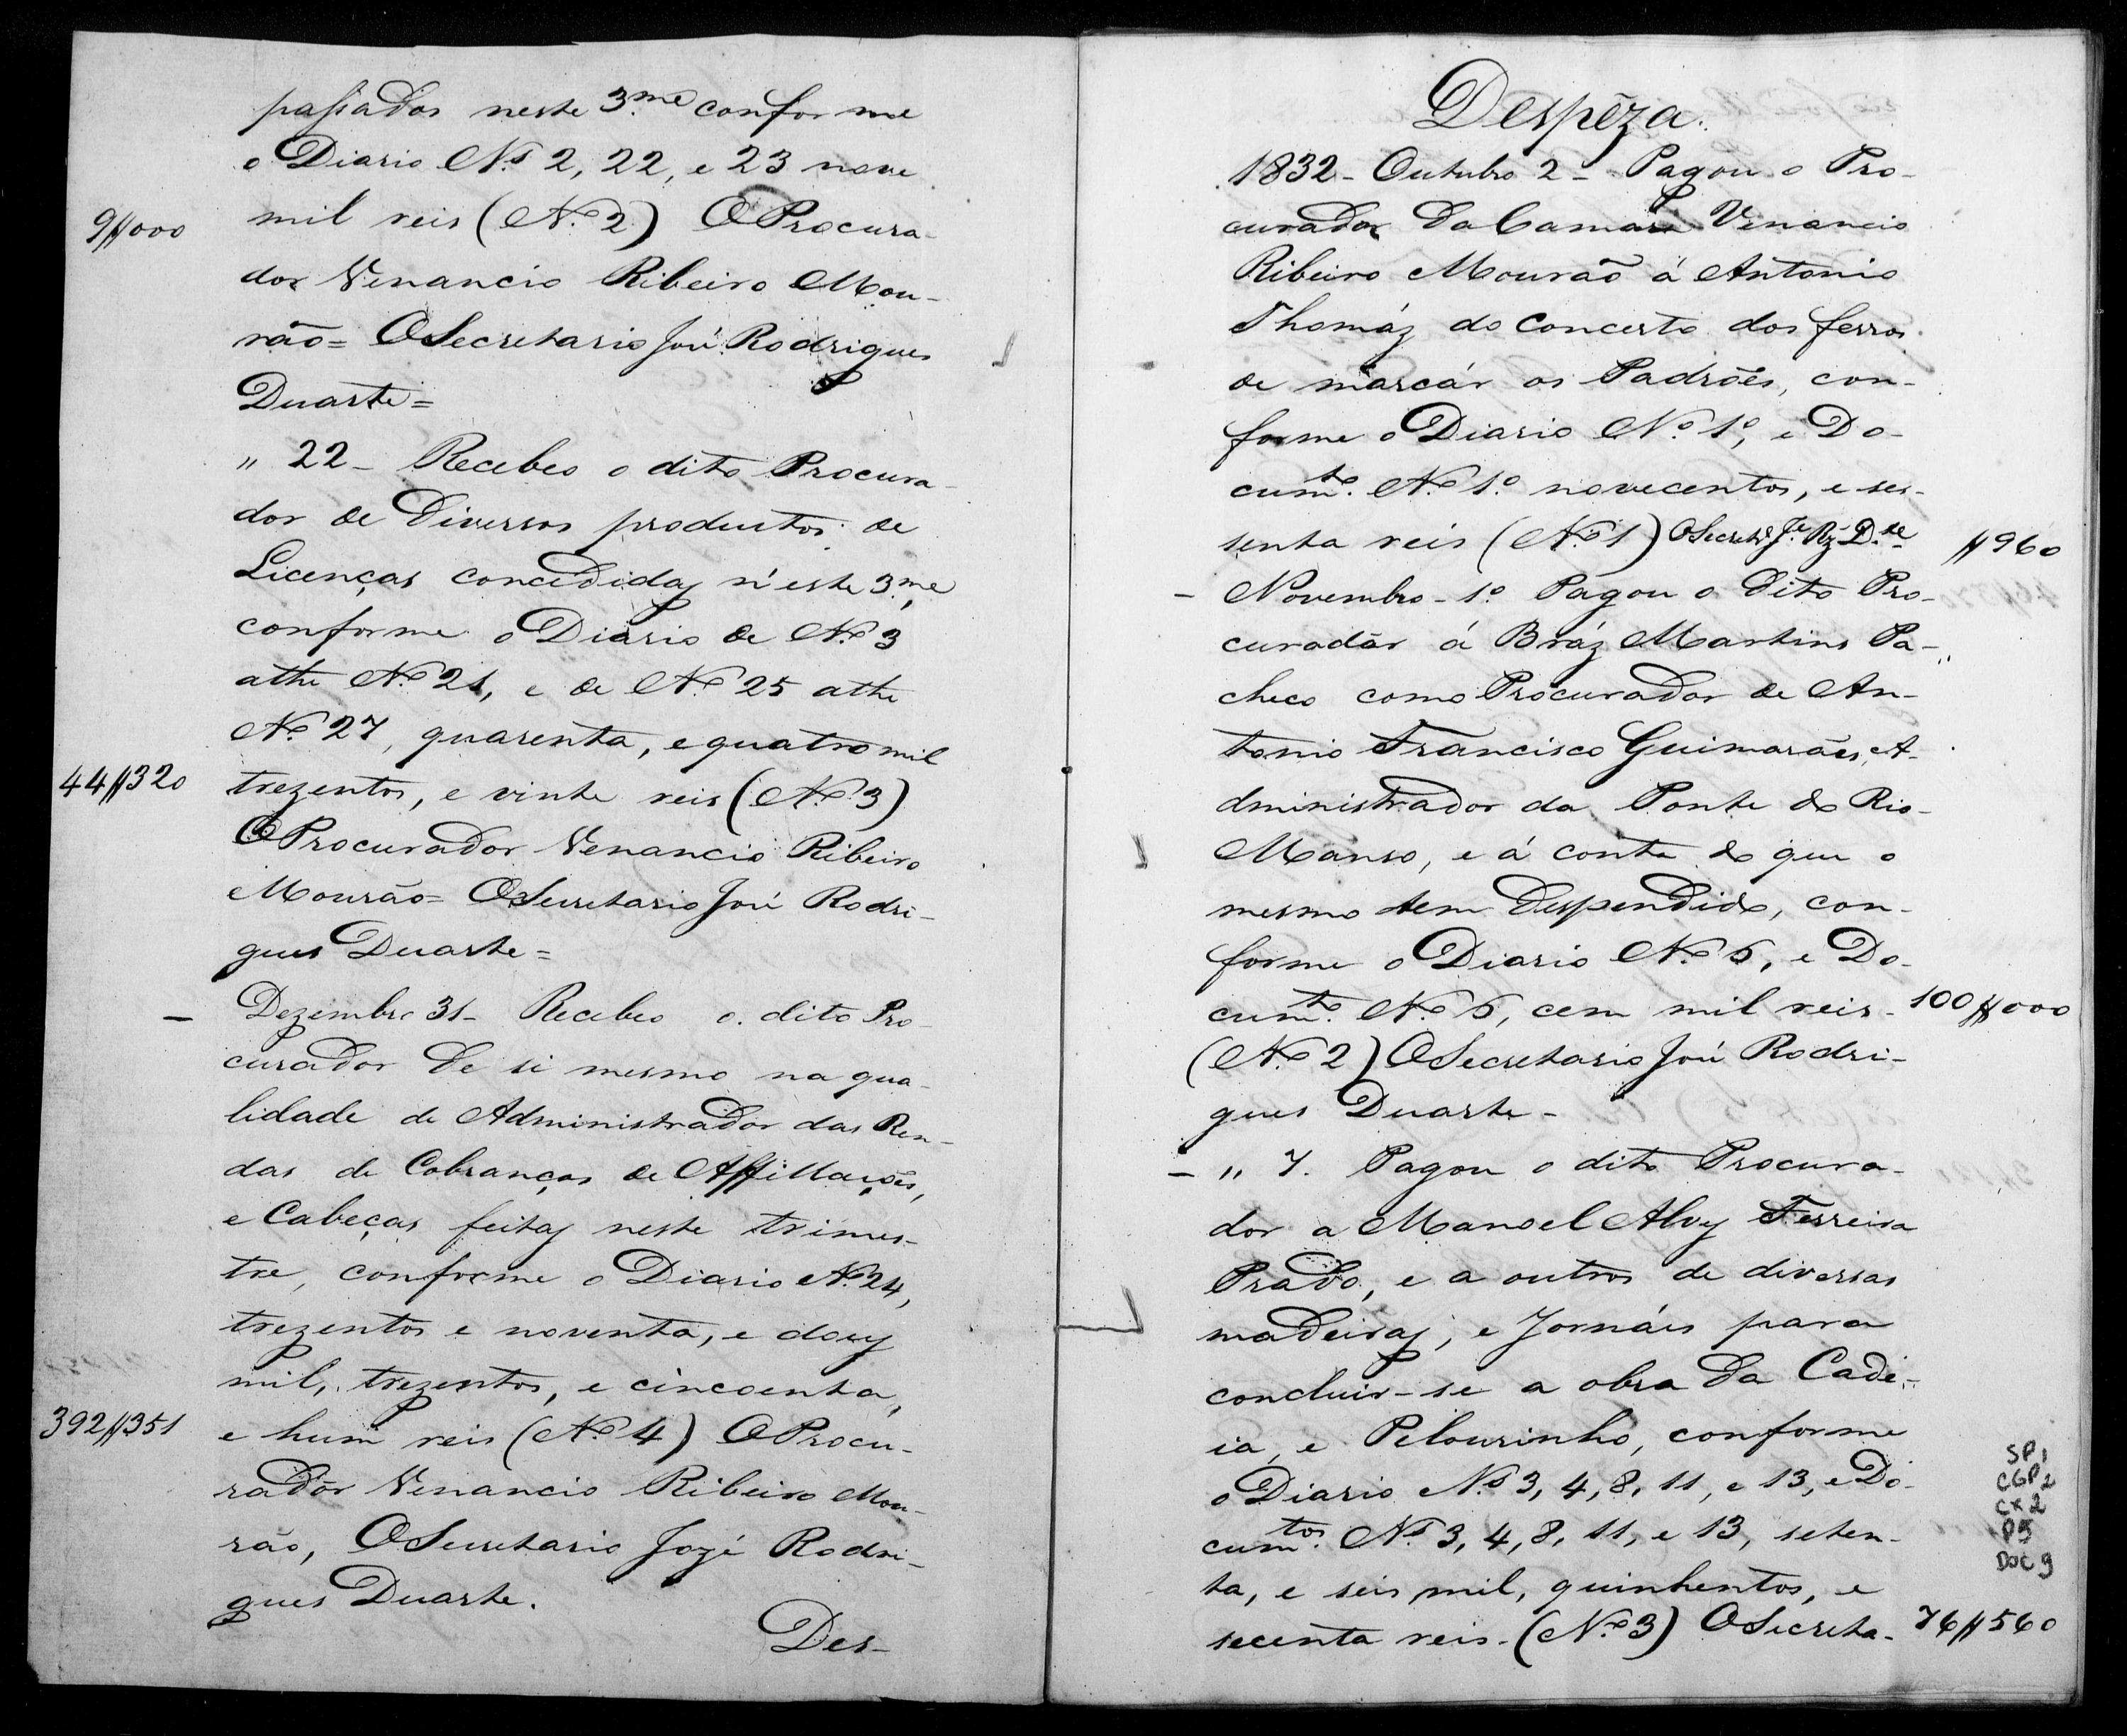 passados neste 3.me conforme
o Diario N.s 2, 22, e 23 nove
9$000 mil reis (N.o 2) O Procura-
dor Venancio Ribeiro Mou-
rão= O Secretario José Rodrigues
Duarte=
" 22 - Recebeo o dito Procura-
dor de Diversos productos de
Licenças concedidas n'este 3.me,
conforme o Diario de N.o 3
athe N.o 21, e de N.o 25 athe
N.o 27, quarenta, e quatro mil
44$320 trezentos, e vinte reis (N.o 3)
O Procurador Venancio Ribeiro
Mourão= O Secretario José Rodri-
gues Duarte=
- Dezembro 31- Recebeo o dito Pro-
curador de si mesmo na qua-
lidade de Administrador das Ren-
das de Cobranças de Affillações,
e Cabeças feitas neste trimes-
tre, conforme o Diario N.o 24,
trezentos e noventa, e dous
mil, trezentos, e cincoenta,
392$351 e hum reis (N.o 4) O Procu-
radôr Venancio Ribeiro Mou-
rão, O Secretario Jozé Rodri-
gues Duarte.
Des-
Despêza.
1832- Outubro 2- Pagou o Pro-
curador da Camara Venancio
Ribeiro Mourão á Antonio
Thomáz do concerto dos ferros
de marcár os Padrões, con-
forme o Diario N.o 1o, e Do-
cum.to N.o 1.o novecentos, e ses-
senta reis (N.o 1) O Secret.o J.e Rz D.te $960
- Novembro- 1.o Pagou o dito Pro-
curadôr á Bráz Martins Pa-
checo como Procurador de An-
tonio Francisco Guimarães, A-
dministrador da Ponte do Rio-
Manso, e á conta do que o
mesmo tem despendido, con-
forme o Diario N.o 6, e Do-
cum.to N.o 6, cem mil reis- 100$000
(N.o 2) O Secretario José Rodri-
gues Duarte-
- " 7. Pagou o dito Procura-
dor a Manoel Alvs Ferreira
Prado, e a outros de diversas
madeiras, e Jornáis para
concluir-se a obra da Cade-
ia, e Pelourinho, conforme
o Diario N.s 3, 4, 8, 11, e 13, e Do-
cum.tos N.s 3, 4, 8, 11, e 13, seten-
ta, e seis mil, quinhentos, e
secenta reis- (N.o 3) O Secreta- 76$560
SP1
CGP2
CX2
P5
DOC9